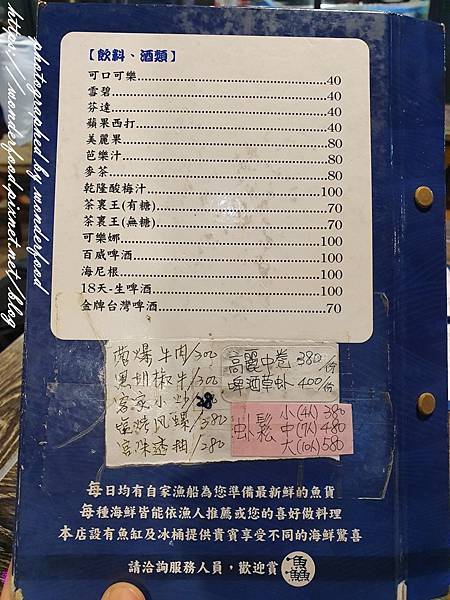 photographed by wonderfood
https://wonderfood.pixnet.net/blog
【飲料、酒類】
可口可樂.....40
雪碧.....40
芬達.....40
蘋果西打.....40
美麗果.....80
芭樂汁.....80
麥茶.....80
乾隆酸梅汁.....100
茶裏王(有糖).....70
茶裏王(無糖).....70
可樂娜.....100
百威啤酒.....100
海尼根.....100
18天-生啤酒.....100
金牌台灣啤酒.....70
蔥爆牛肉/300
黑胡椒牛/300
客家小炒
鹽烤風螺/380
宮保透抽/280
高麗中卷380/份
啤酒草虾400/份
虾鬆
小(4人)380
中(7人)480
大(10人)580
每日均有自家漁船為您準備最新鮮的魚貨
每種海鮮皆能依漁人推薦或您的喜好做料理
本店設有魚缸及冰桶提供貴賓享受不同的海鮮驚喜
請洽詢服務人員,歡迎賞